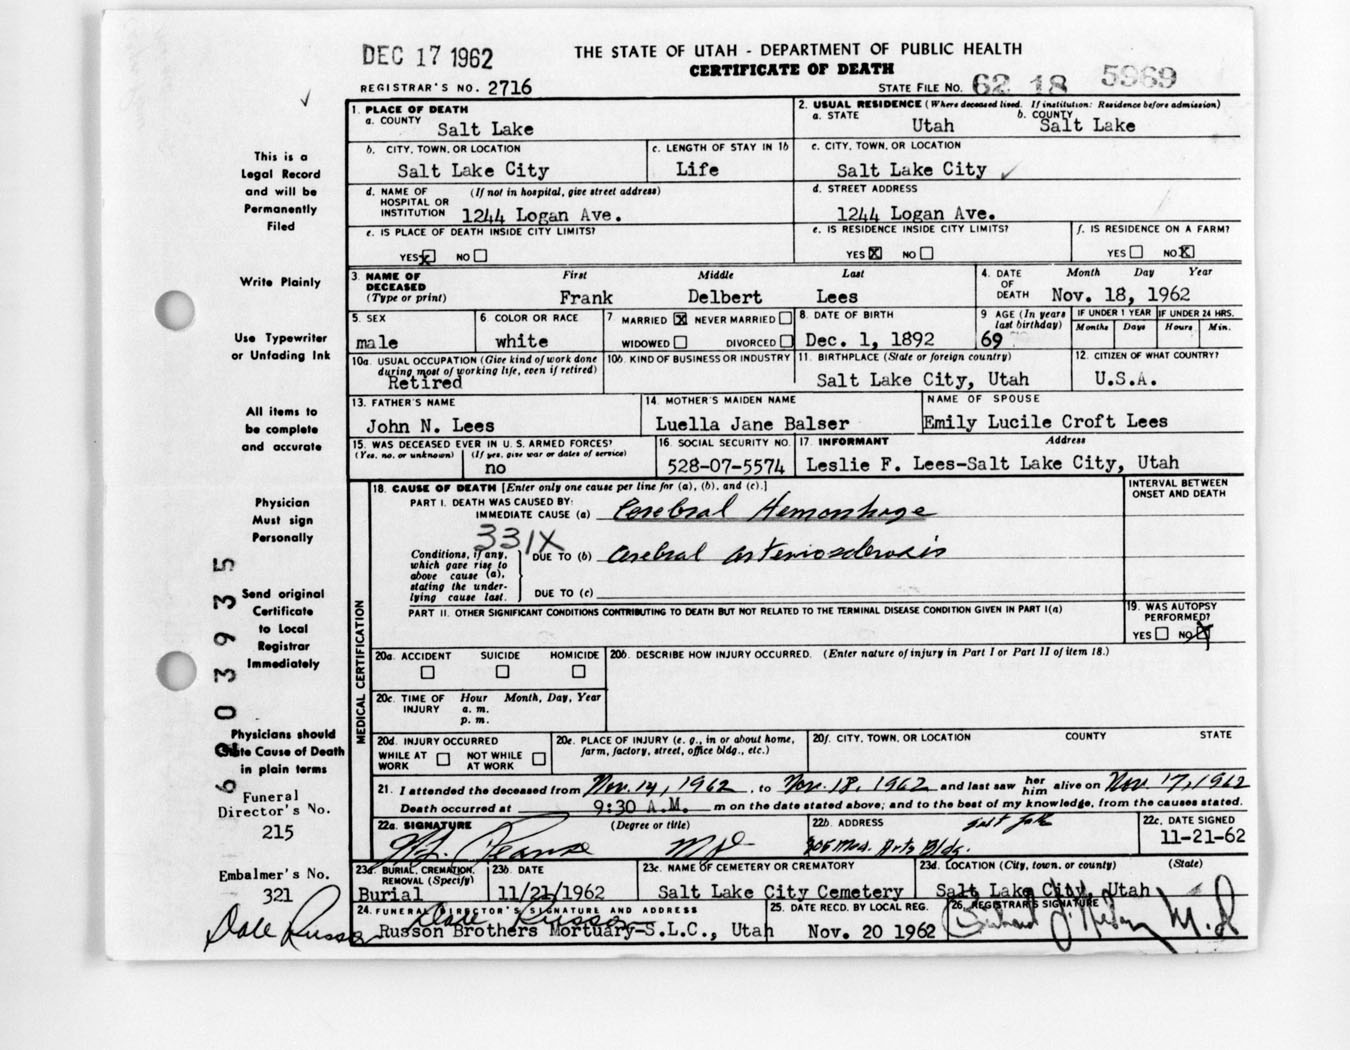 DEC 17 1962
THE STATE OF UTAH - DEPARTMENT OF PUBLIC HEALTH
CERTIFICATE OF DEATH
REGISTRAR'S NO. 2716
STATE FILE NO. 62 18 5969
This is a
Legal Record
and will be
Permanently
Filed
Write Plainly
Use Typewriter
or Unfading Ink
All items to
be complete
and accurate
Physician
Must sign
Personally
Send original
Certificate
to Local
Registrar
Immediately
Physicians should
State Cause of Death
in plain terms
Funeral
Director's No.
215
Embalmer's No.
321
Dale Russon
1. PLACE OF DEATH
a. COUNTY Salt Lake
2. USUAL RESIDENCE (Where deceased lived. If institution: Residence before admission)
a. STATE Utah b. COUNTY Salt Lake
b. CITY, TOWN, OR LOCATION Salt Lake City
c. LENGTH OF STAY IN 1b Life
c. CITY, TOWN, OR LOCATION Salt Lake City
d. NAME OF HOSPITAL OR INSTITUTION (If not in hospital, give street address) 1244 Logan Ave.
d. STREET ADDRESS 1244 Logan Ave.
e. IS PLACE OF DEATH INSIDE CITY LIMITS?
YES NO
e. IS RESIDENCE INSIDE CITY LIMITS?
YES X NO
f. IS RESIDENCE ON A FARM?
YES NO X
3. NAME OF DECEASED (Type or print)
First Middle Last
Frank Delbert Lees
4. DATE OF DEATH Month Day Year
Nov. 18, 1962
5. SEX male
6 COLOR OR RACE white
7 MARRIED X NEVER MARRIED
WIDOWED DIVORCED
8. DATE OF BIRTH Dec. 1, 1892
9 AGE (In years last birthday) 69
IF UNDER 1 YEAR Months Days
IF UNDER 24 HRS. Hours Min.
10a. USUAL OCCUPATION (Give kind of work done during most of working life, even if retired)
Retired
10b. KIND OF BUSINESS OR INDUSTRY
11. BIRTHPLACE (State or foreign country)
Salt Lake City, Utah
12. CITIZEN OF WHAT COUNTRY?
U.S.A.
13. FATHER'S NAME
John N. Lees
14. MOTHER'S MAIDEN NAME
Luella Jane Balser
NAME OF SPOUSE
Emily Lucile Croft Lees
15. WAS DECEASED EVER IN U. S. ARMED FORCES?
(Yes, no, or unknown) (If yes, give war or dates of service)
no
16. SOCIAL SECURITY NO.
528-07-5574
17. INFORMANT Address
Leslie F. Lees-Salt Lake City, Utah
MEDICAL CERTIFICATION
18. CAUSE OF DEATH [Enter only one cause per line for (a), (b), and (c).]
INTERVAL BETWEEN ONSET AND DEATH
PART I. DEATH WAS CAUSED BY:
IMMEDIATE CAUSE (a) Cerebral Hemorrhage
331X
Conditions, if any, which gave rise to above cause (a), stating the underlying cause last.
DUE TO (b) Cerebral arteriosclerosis
DUE TO (c)
PART II. OTHER SIGNIFICANT CONDITIONS CONTRIBUTING TO DEATH BUT NOT RELATED TO THE TERMINAL DISEASE CONDITION GIVEN IN PART I(a)
19. WAS AUTOPSY PERFORMED?
YES NO X
20a. ACCIDENT SUICIDE HOMICIDE
20b. DESCRIBE HOW INJURY OCCURRED. (Enter nature of injury in Part I or Part II of item 18.)
20c. TIME OF INJURY Hour Month, Day, Year
a. m.
p. m.
20d. INJURY OCCURRED
WHILE AT WORK NOT WHILE AT WORK
20e. PLACE OF INJURY (e. g., in or about home, farm, factory, street, office bldg., etc.)
20f. CITY, TOWN, OR LOCATION COUNTY STATE
21. I attended the deceased from Nov. 14, 1962, to Nov. 18, 1962 and last saw her him alive on Nov 17, 1962
Death occurred at 9:30 A.M. m on the date stated above; and to the best of my knowledge, from the causes stated.
22a. SIGNATURE (Degree or title)
MD
22b. ADDRESS Salt Lake
Arts Bldg.
22c. DATE SIGNED
11-21-62
23a. BURIAL, CREMATION, REMOVAL (Specify)
Burial
23b. DATE
11/21/1962
23c. NAME OF CEMETERY OR CREMATORY
Salt Lake City Cemetery
23d. LOCATION (City, town, or county) (State)
Salt Lake City, Utah
24. FUNERAL DIRECTOR'S SIGNATURE AND ADDRESS
Dale Russon
Russon Brothers Mortuary-S.L.C., Utah
25. DATE RECD. BY LOCAL REG.
Nov. 20 1962
26. REGISTRAR'S SIGNATURE
M.D.